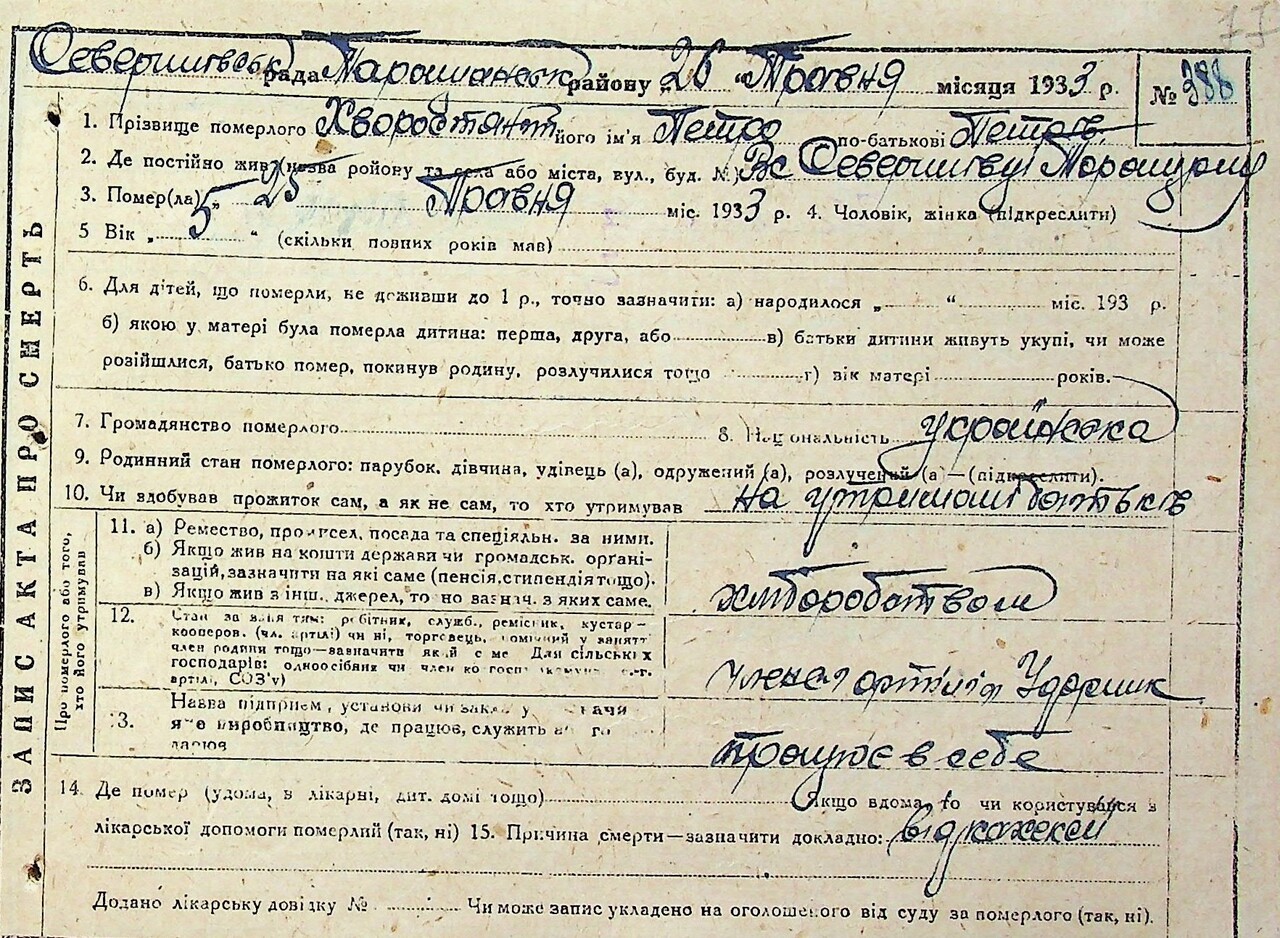 77
рада Таращанськ району „26 “ Травня місяця 1933 р. № 388
1. Прізвище померлого його ім'я Петро по-батькові
2. Де постійно жив (назва ройону та села або міста, вул., буд. №)
3. Помер(ла) „ 25 Травня міс. 1933 р. 4. Чоловік, жінка (підкреслити)
5 Вік „ 5 “ (скільки повних років мав)
6. Для дітей, що померли, не доживши до 1 р., точно зазначити: а) народилося „ “ міс. 193 р.
б) якою у матері була померла дитина: перша, друга, або в) батьки дитини живуть укупі, чи може
розійшлися, батько помер, покинув родину, розлучилися тощо г) вік матері років.
7. Громадянство померлого 8. Національність українська
9. Родинний стан померлого: парубок. дівчина, удівець (а), одружений (а), розлучений (а)—(підкреслити).
10. Чи здобував прожиток сам, а як не сам, то хто утримував на утриманні батьків
ЗАПИС АКТА ПРО СМЕРТЬ
Про померлого або того,
хто його утримував
11. а) Ремество, промисел, посада та спеціяльн. за ними.
б) Якщо жив на кошти держави чи громадськ. орґані-
зацій, зазначити на які саме (пенсія, стипендія тощо).
в) Якщо жив з інш. джерел, точно зазнач. з яких саме.
хліборобством
12. Стан за занятям: робітник, служб., ремісник, кустар—
кооперов. (чл. артілі) чи ні, торговець, помічний у занятт
член родини тощо—зазначити який саме Для сільських
господарів: одноосібник чи член
артілі, СОЗ'у)
члена артілі Ударник
13. Назва підприєм., установи чи
виробництво, де працює, служить
працює в себе
14. Де помер (удома, в лікарні, дит. домі тощо) Якщо вдома, то чи користувався з
лікарської допомоги померлий (так, ні) 15. Причина смерти—зазначити докладно: від кахексії
Додано лікарську довідку № Чи може запис укладено на оголошеного від суду за померлого (так, ні).